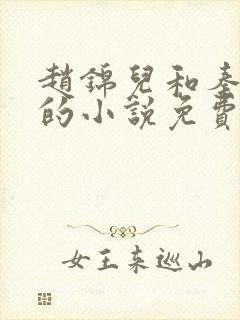 趙錦兒和秦
的小說免費
女王來巡山